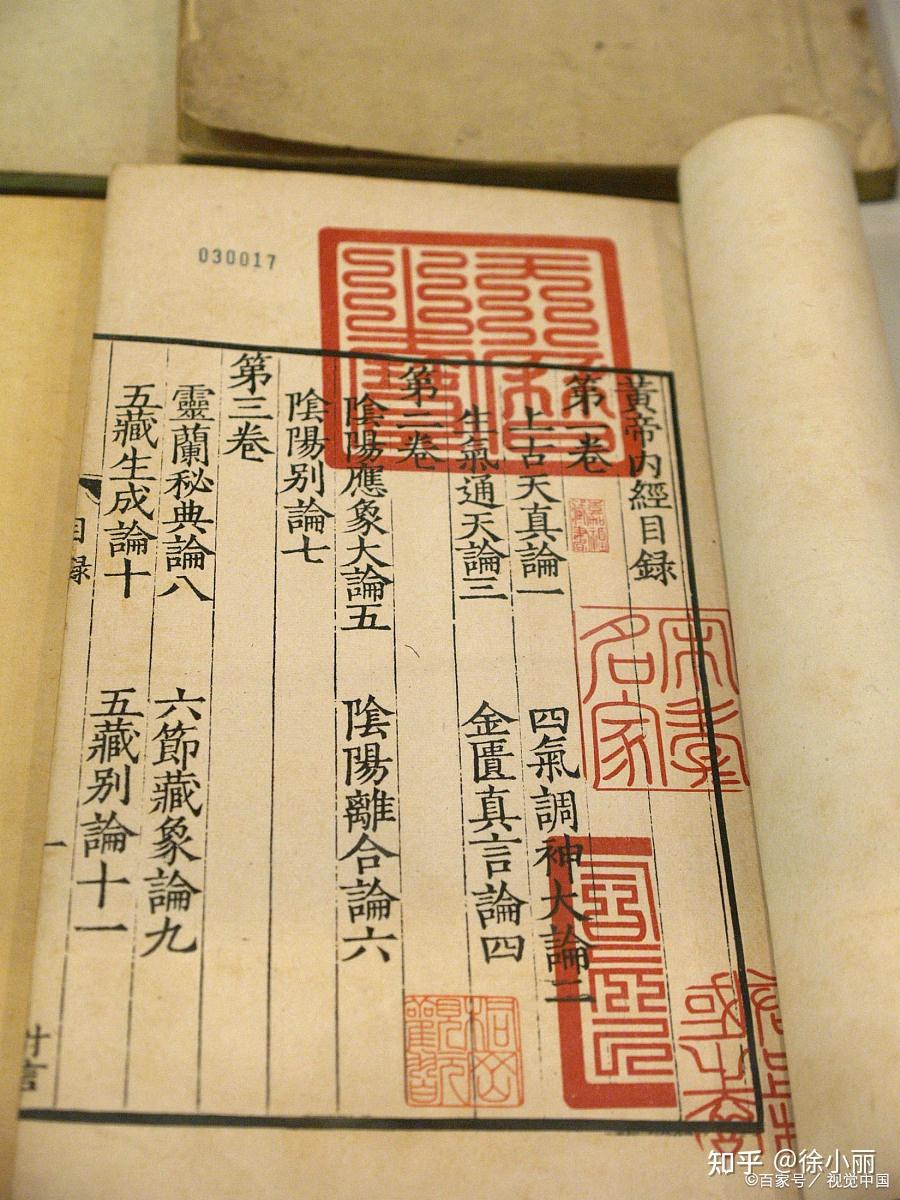 030017
黃帝内經目録
第一卷
上古天真論一 四氣調神大論二
生氣通天論三 金匱真言論四
第二卷
陰陽應象大論五 陰陽離合論六
陰陽别論七
第三卷
靈蘭秘典論八 六節藏象論九
五藏生成論十 五藏别論十一
目録
一
宋季
名家
知乎 @徐小丽
©百家号／视觉中国